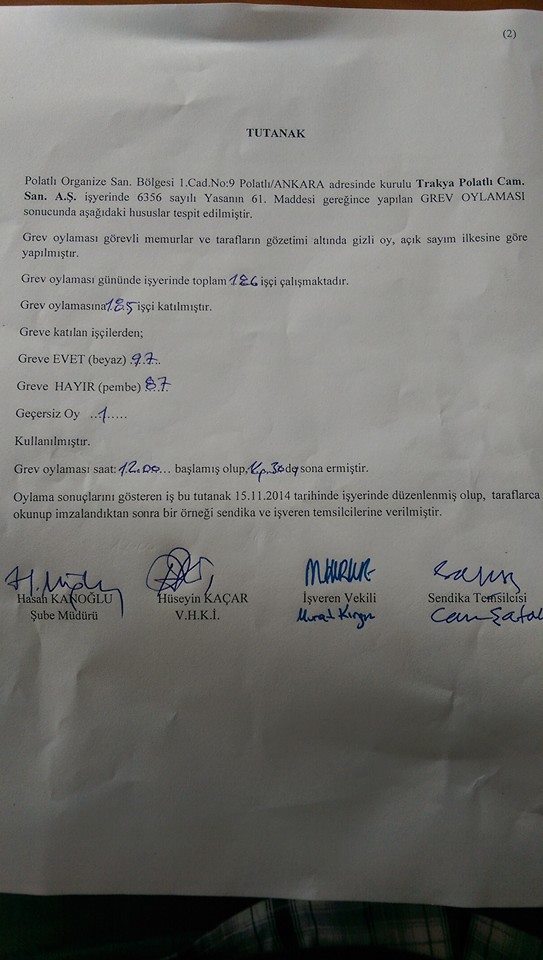 (2)
TUTANAK
Polatlı Organize San. Bölgesi 1.Cad.No:9 Polatlı/ANKARA adresinde kurulu Trakya Polatlı Cam.
San. A.Ş. işyerinde 6356 sayılı Yasanın 61. Maddesi gereğince yapılan GREV OYLAMASI
sonucunda aşağıdaki hususlar tespit edilmiştir.
Grev oylaması görevli memurlar ve tarafların gözetimi altında gizli oy, açık sayım ilkesine göre
yapılmıştır.
Grev oylaması gününde işyerinde toplam 186 işçi çalışmaktadır.
Grev oylamasına 185 işçi katılmıştır.
Greve katılan işçilerden;
Greve EVET (beyaz) 97..
Greve HAYIR (pembe) 87
Geçersiz Oy ..1.....
Kullanılmıştır.
Grev oylaması saat: 12.00... başlamış olup, de sona ermiştir.
Oylama sonuçlarını gösteren iş bu tutanak 15.11.2014 tarihinde işyerinde düzenlenmiş olup, taraflarca
okunup imzalandıktan sonra bir örneği sendika ve işveren temsilcilerine verilmiştir.
Hasan KANOĞLU Hüseyin KAÇAR İşveren Vekili Sendika Temsilcisi
Şube Müdürü V.H.K.İ. Murat